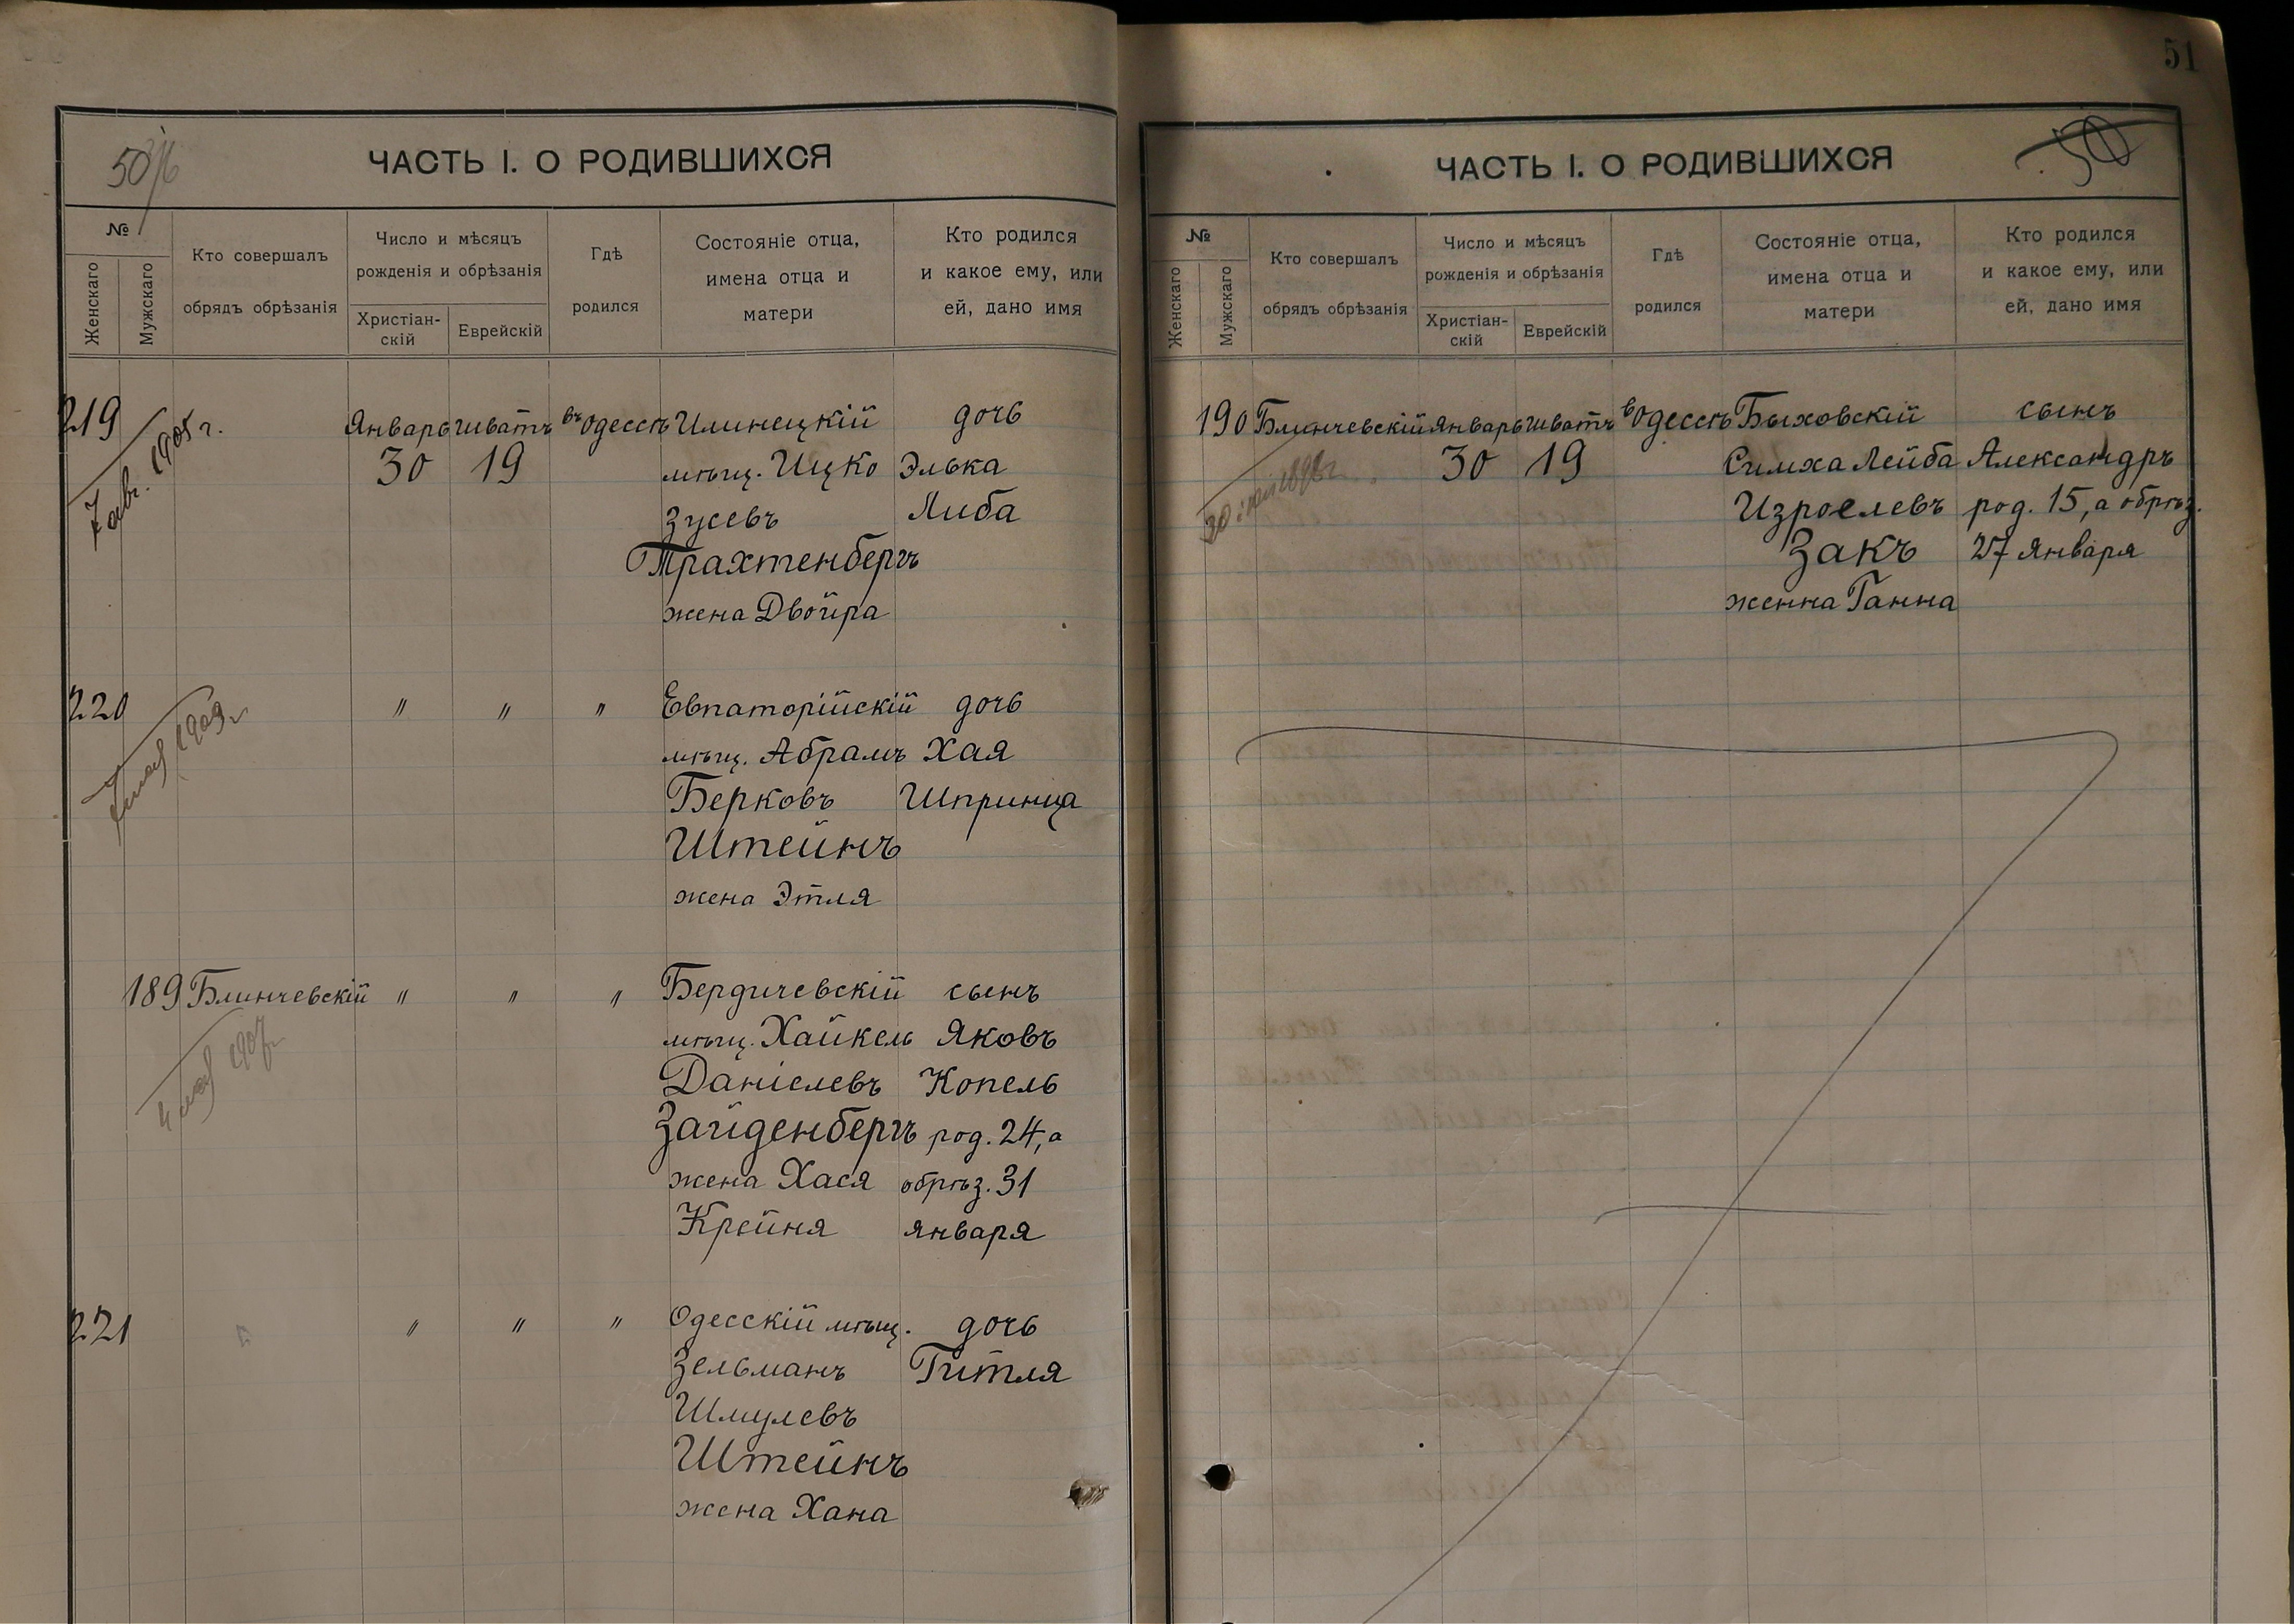 50
ЧАСТЬ I. О РОДИВШИХСЯ
№
Женскаго
Мужскаго
Кто совершалъ
обрядъ обрѣзанія
Число и мѣсяцъ
рожденія и обрѣзанія
Христіан-
скій
Еврейскій
Гдѣ
родился
Состояніе отца,
имена отца и
матери
Кто родился
и какое ему, или
ей, дано имя
219 Январь шватъ въ Одессѣ Илинецкій дочь
7 авг. 1905 г.
30 19 мѣщ. Ицко Элька
Зусевъ Либа
Трахтенбергъ
жена Двойра
220 " " " Евпаторійскій дочь
1909 г.
мѣщ. Абрамъ Хая
Берковъ Шпринца
Штейнъ
жена Этля
189 Блинчевскій " " " Бердичевскій сынъ
4 мая 1907 г.
мѣщ. Хайкель Яковъ
Даніелевъ Копель
Зайденбергъ род. 24, а
жена Хася обрѣз. 31
Крейня января
221 " " " Одесскій мѣщ. дочь
Зельманъ Гитля
Шмулевъ
Штейнъ
жена Хана
51
50
ЧАСТЬ I. О РОДИВШИХСЯ
№
Женскаго
Мужскаго
Кто совершалъ
обрядъ обрѣзанія
Число и мѣсяцъ
рожденія и обрѣзанія
Христіан-
скій
Еврейскій
Гдѣ
родился
Состояніе отца,
имена отца и
матери
Кто родился
и какое ему, или
ей, дано имя
190 Блинчевскій Январь шватъ въ Одессѣ Быховскій сынъ
30 19 Симха Лейба Александръ
Изроелевъ род. 15, а обрѣз.
Закъ 27 января
женна Ганна